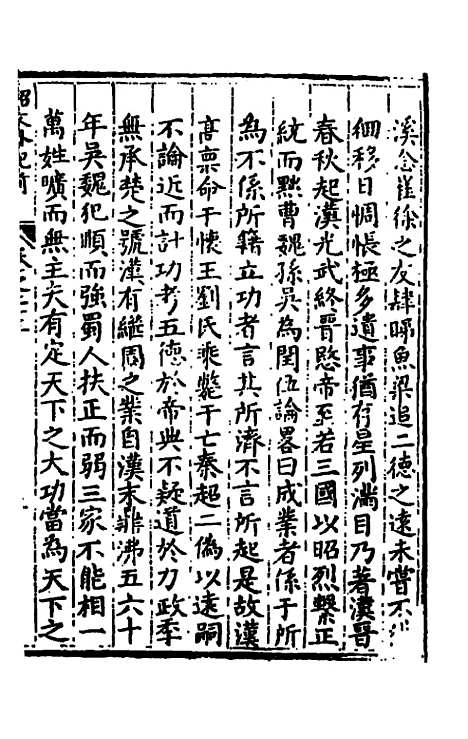 溪念崔徐之友肆睇魚梁追二德之遠未嘗不
徊移日惆悵極多遺事猶存星列滿目乃著漢晋
春秋起漢光武終晋愍帝至若三國以昭烈繫正
統而黜曹魏孫吳為閏位論畧曰成業者係于所
為不係所籍立功者言其所濟不言所起是故漢
高稟命于懷王劉氏乘斃于亡秦超二偽以遠嗣
不論近而計功考五德於帝典不疑道於力政季
無承楚之號漢有繼周之業自漢末鼎沸五六十
年吳魏犯順而強蜀人扶正而弱三家不能相一
萬姓曠而無主夫有定天下之大功當為天下之